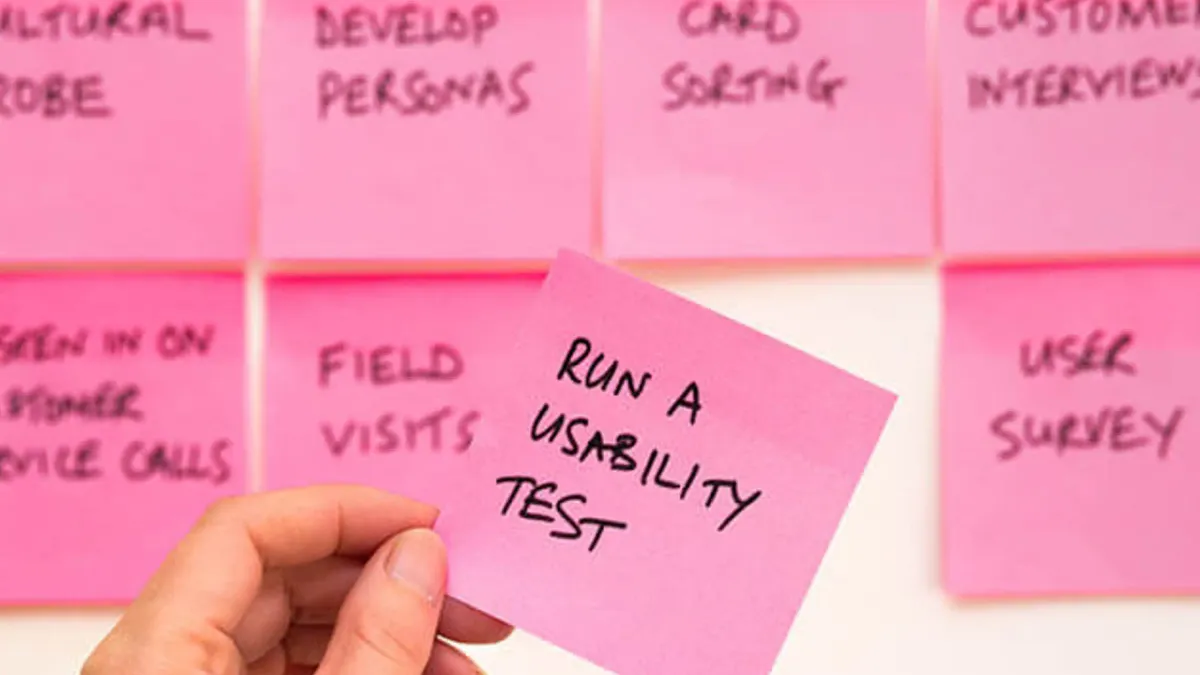 ULTURAL
ROBE
DEVELOP
PERSONAS
CARD
SORTING
CUSTOMER
INTERVIEWS
STEN IN ON
STOMER
RVICE CALLS
FIELD
VISITS
RUN A
USABILITY
TEST
USER
SURVEY